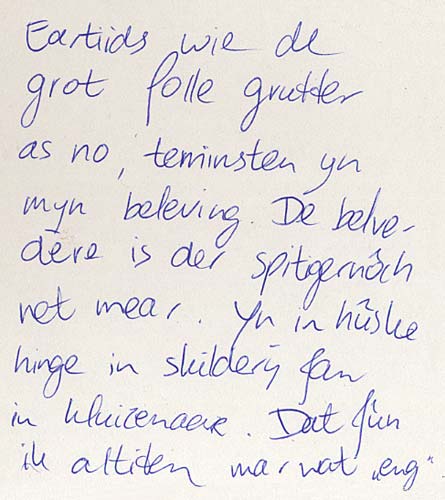 Eartiids wie de
grot folle grutter
as no, teminsten yn
myn beleving. De belve-
dère is der spitgernôch
net mear. Yn in hûske
hinge in skilderij fan
in kluizenaar. Dat fûn
ik altiten mar wat „eng".